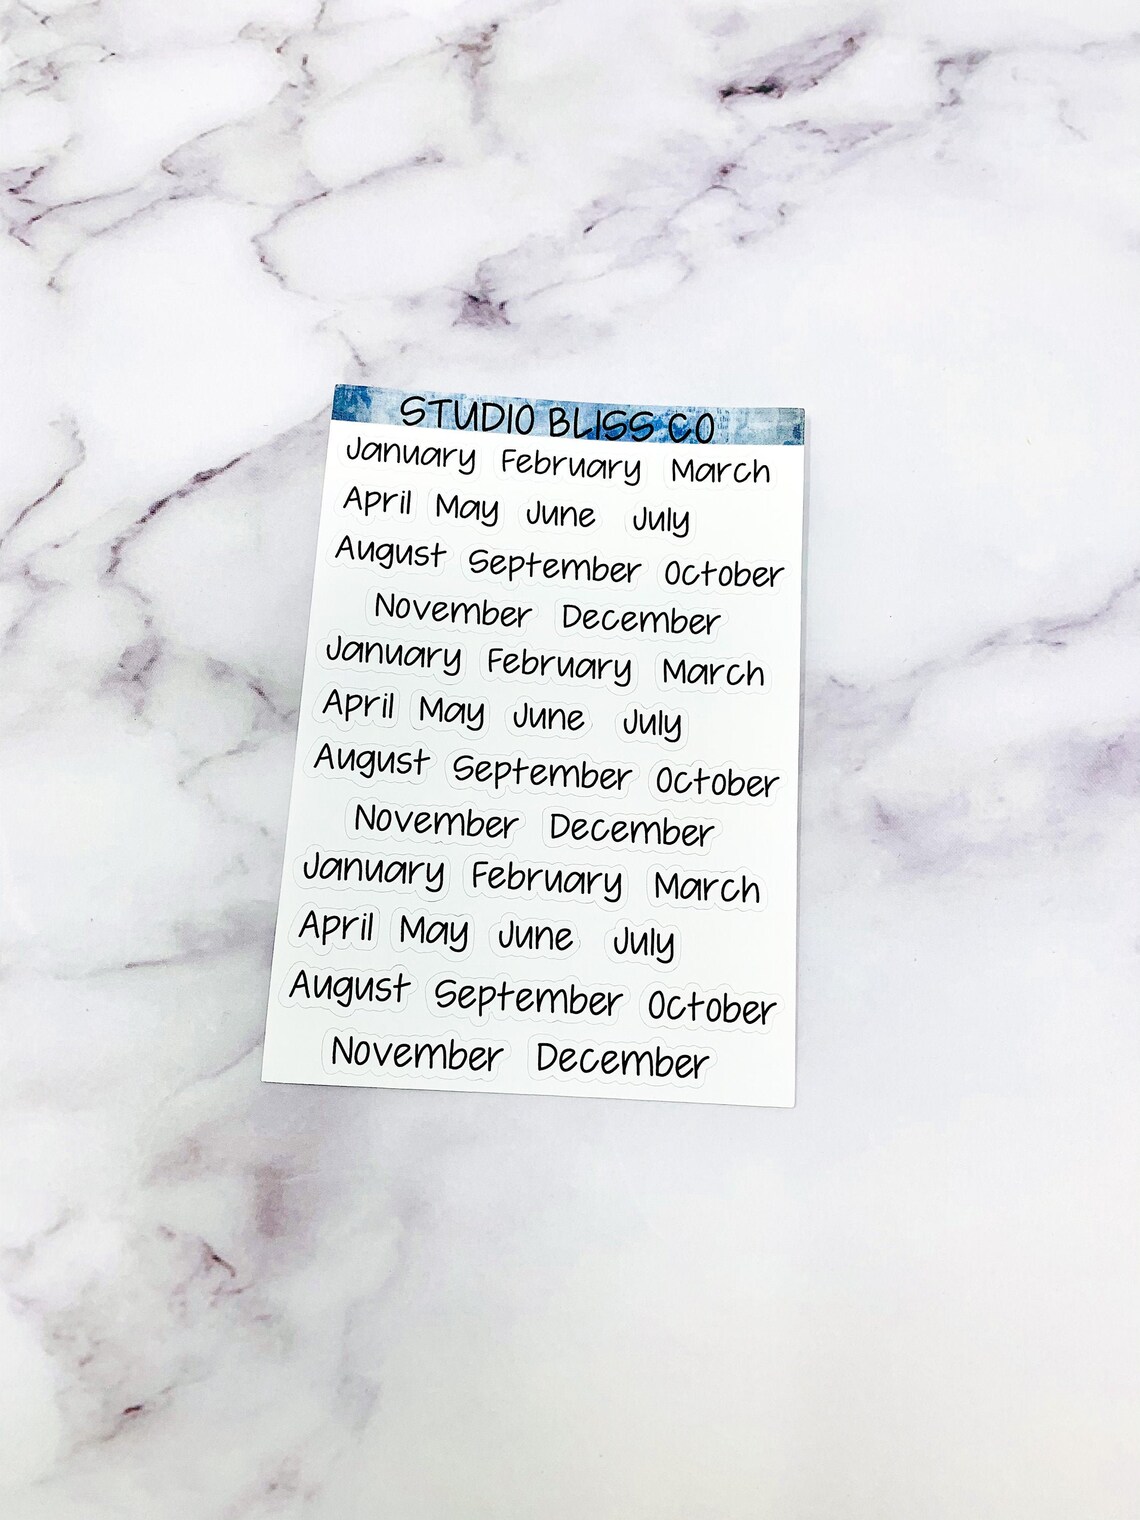 STUDIO BLISS CO
January February March
April May June July
August September October
November December
January February March
April May June July
August September October
November December
January February March
April May June July
August September October
November December